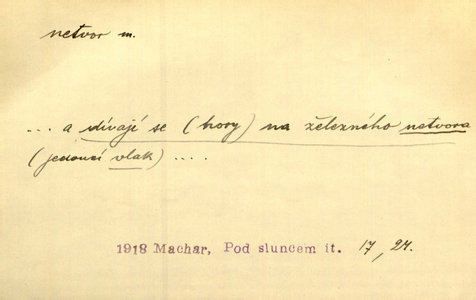 netvor m.
... a dívají se (hory) na železného netvora
(jedoucí vlak) ....
1918 Machar, Pod sluncem it. 17, 24.